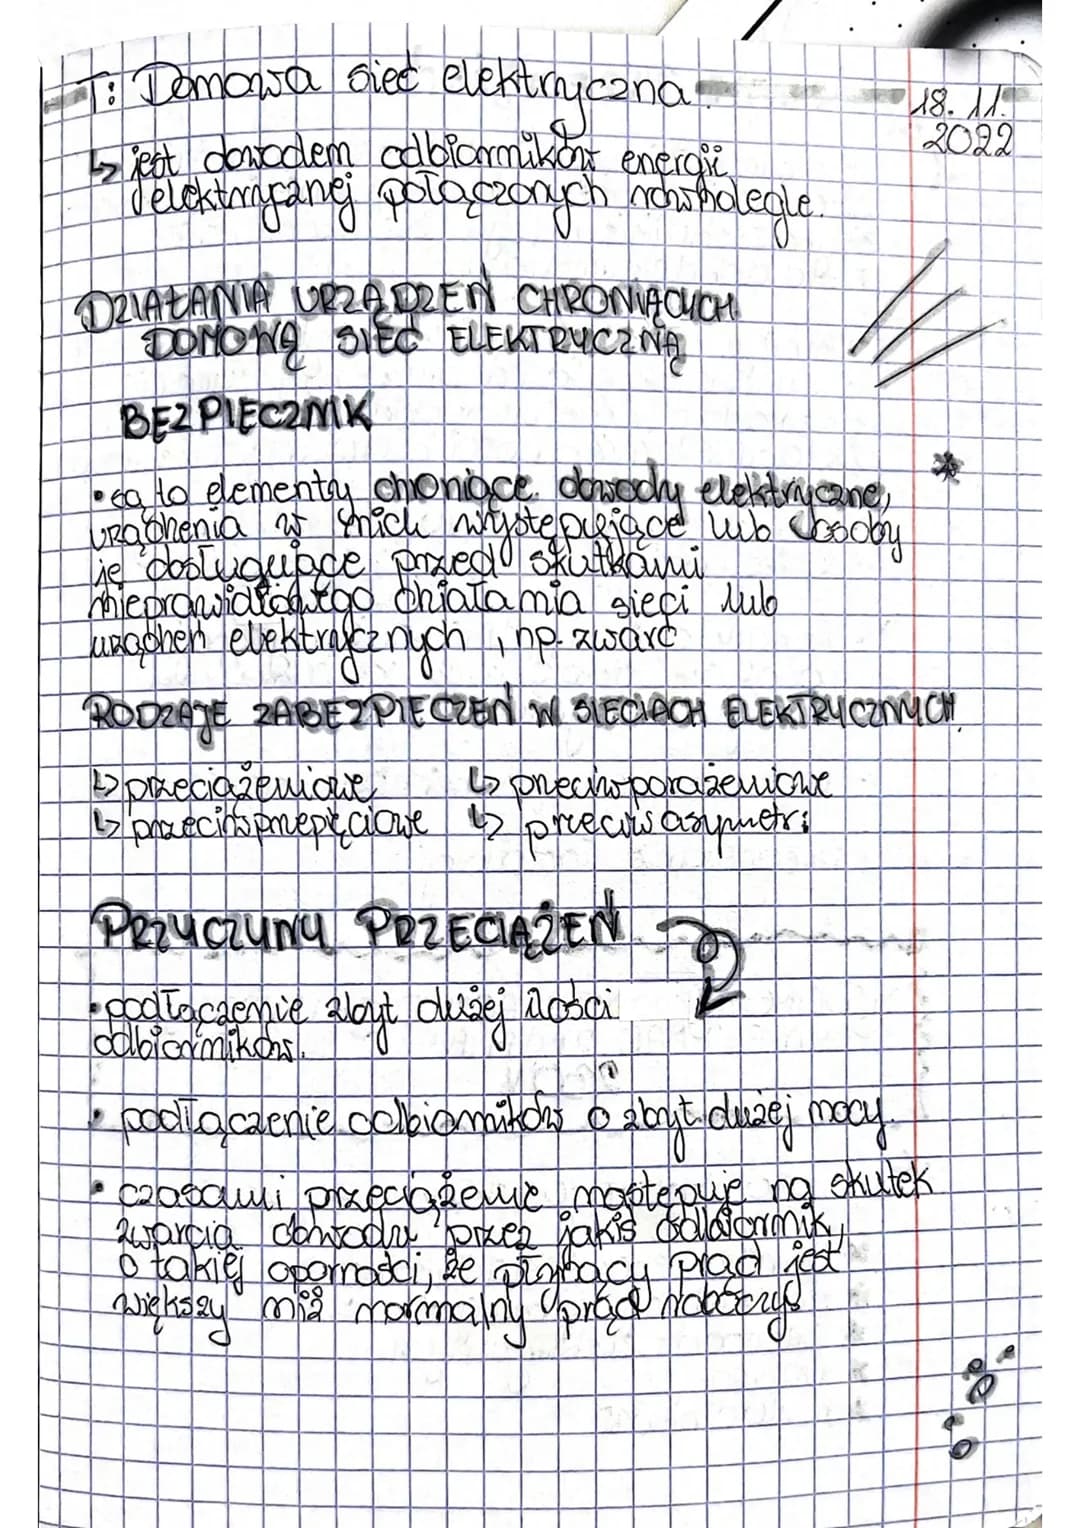 T: Domowa sieć elektryczna
18.11.
2022
↳ jest obwodem odbiorników energii
elektrycznej połączonych równolegle.
DZIAŁANIA URZĄDZEŃ CHRONIĄCYCH
DOMOWĄ SIEĆ ELEKTRYCZNĄ
BEZPIECZNIK
• są to elementy chroniące obwody elektryczne,
urządzenia w nich występujące lub osoby
je obsługujące przed skutkami
nieprawidłowego działania sieci lub
urządzeń elektrycznych, np. zwarć
RODZAJE ZABEZPIECZEŃ W SIECIACH ELEKTRYCZNYCH
↳ przeciążeniowe ↳ przeciwporażeniowe
↳ przeciwprzepięciowe ↳ przeciwasymetri
PRZYCZYNY PRZECIĄŻEŃ
• podłączenie zbyt dużej ilości
odbiorników.
• podłączenie odbiorników o zbyt dużej mocy.
• czasami przeciążenie następuje na skutek
zwarcia obwodu przez jakiś odbiornik,
o takiej oporności, że płynący prąd jest
większy niż normalny prąd roboczy